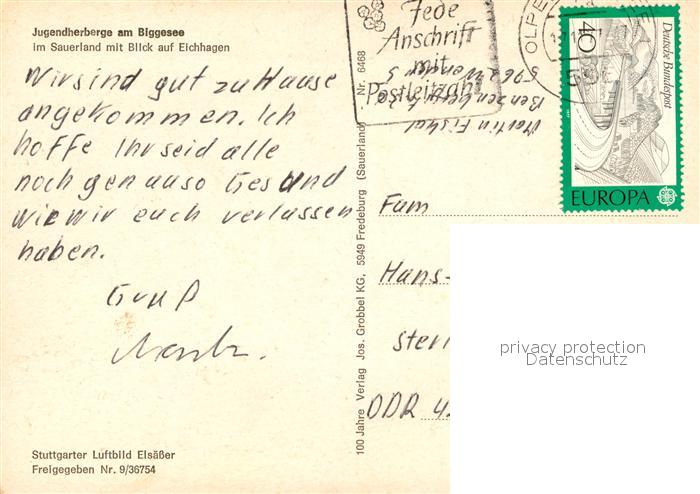 Jugendherberge am Biggesee
im Sauerland mit Blick auf Eichhagen
Wir sind gut zu Hause
angekommen. Ich
hoffe Ihr seid alle
noch genauso Gesund
wie wir euch verlassen
haben.
Gruß
Stuttgarter Luftbild Elsäßer
Freigegeben Nr. 9/36754
100 Jahre Verlag Jos. Grobbel KG, 5949 Fredeburg (Sauerland) Nr. 6468
Jede
Anschrift
mit
Postleitzahl
OLPE
Martin
5962
40
Deutsche Bundespost
EUROPA
Fam
Hans-
DDR
privacy protection
Datenschutz